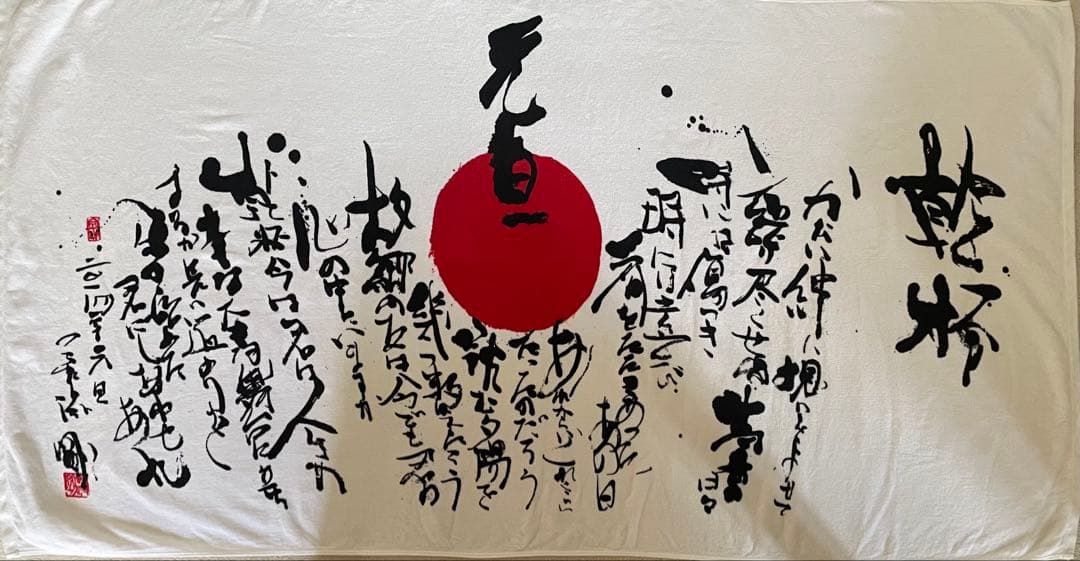 乾杯
かたい絆に想いをよせて
語り尽くせぬ青春
時には傷つき
時には喜び
肩をたたきあった
あの日
元旦
あれからどれくらい
たったのだろう
沈む夕陽を
幾つ数えたろう
故郷の友は今でも君の
心の中にいますか
乾杯今君は人生の
大きな大きな舞台
はるか長い道のりを
君に幸せあれ
二〇一四年元旦
長渕剛